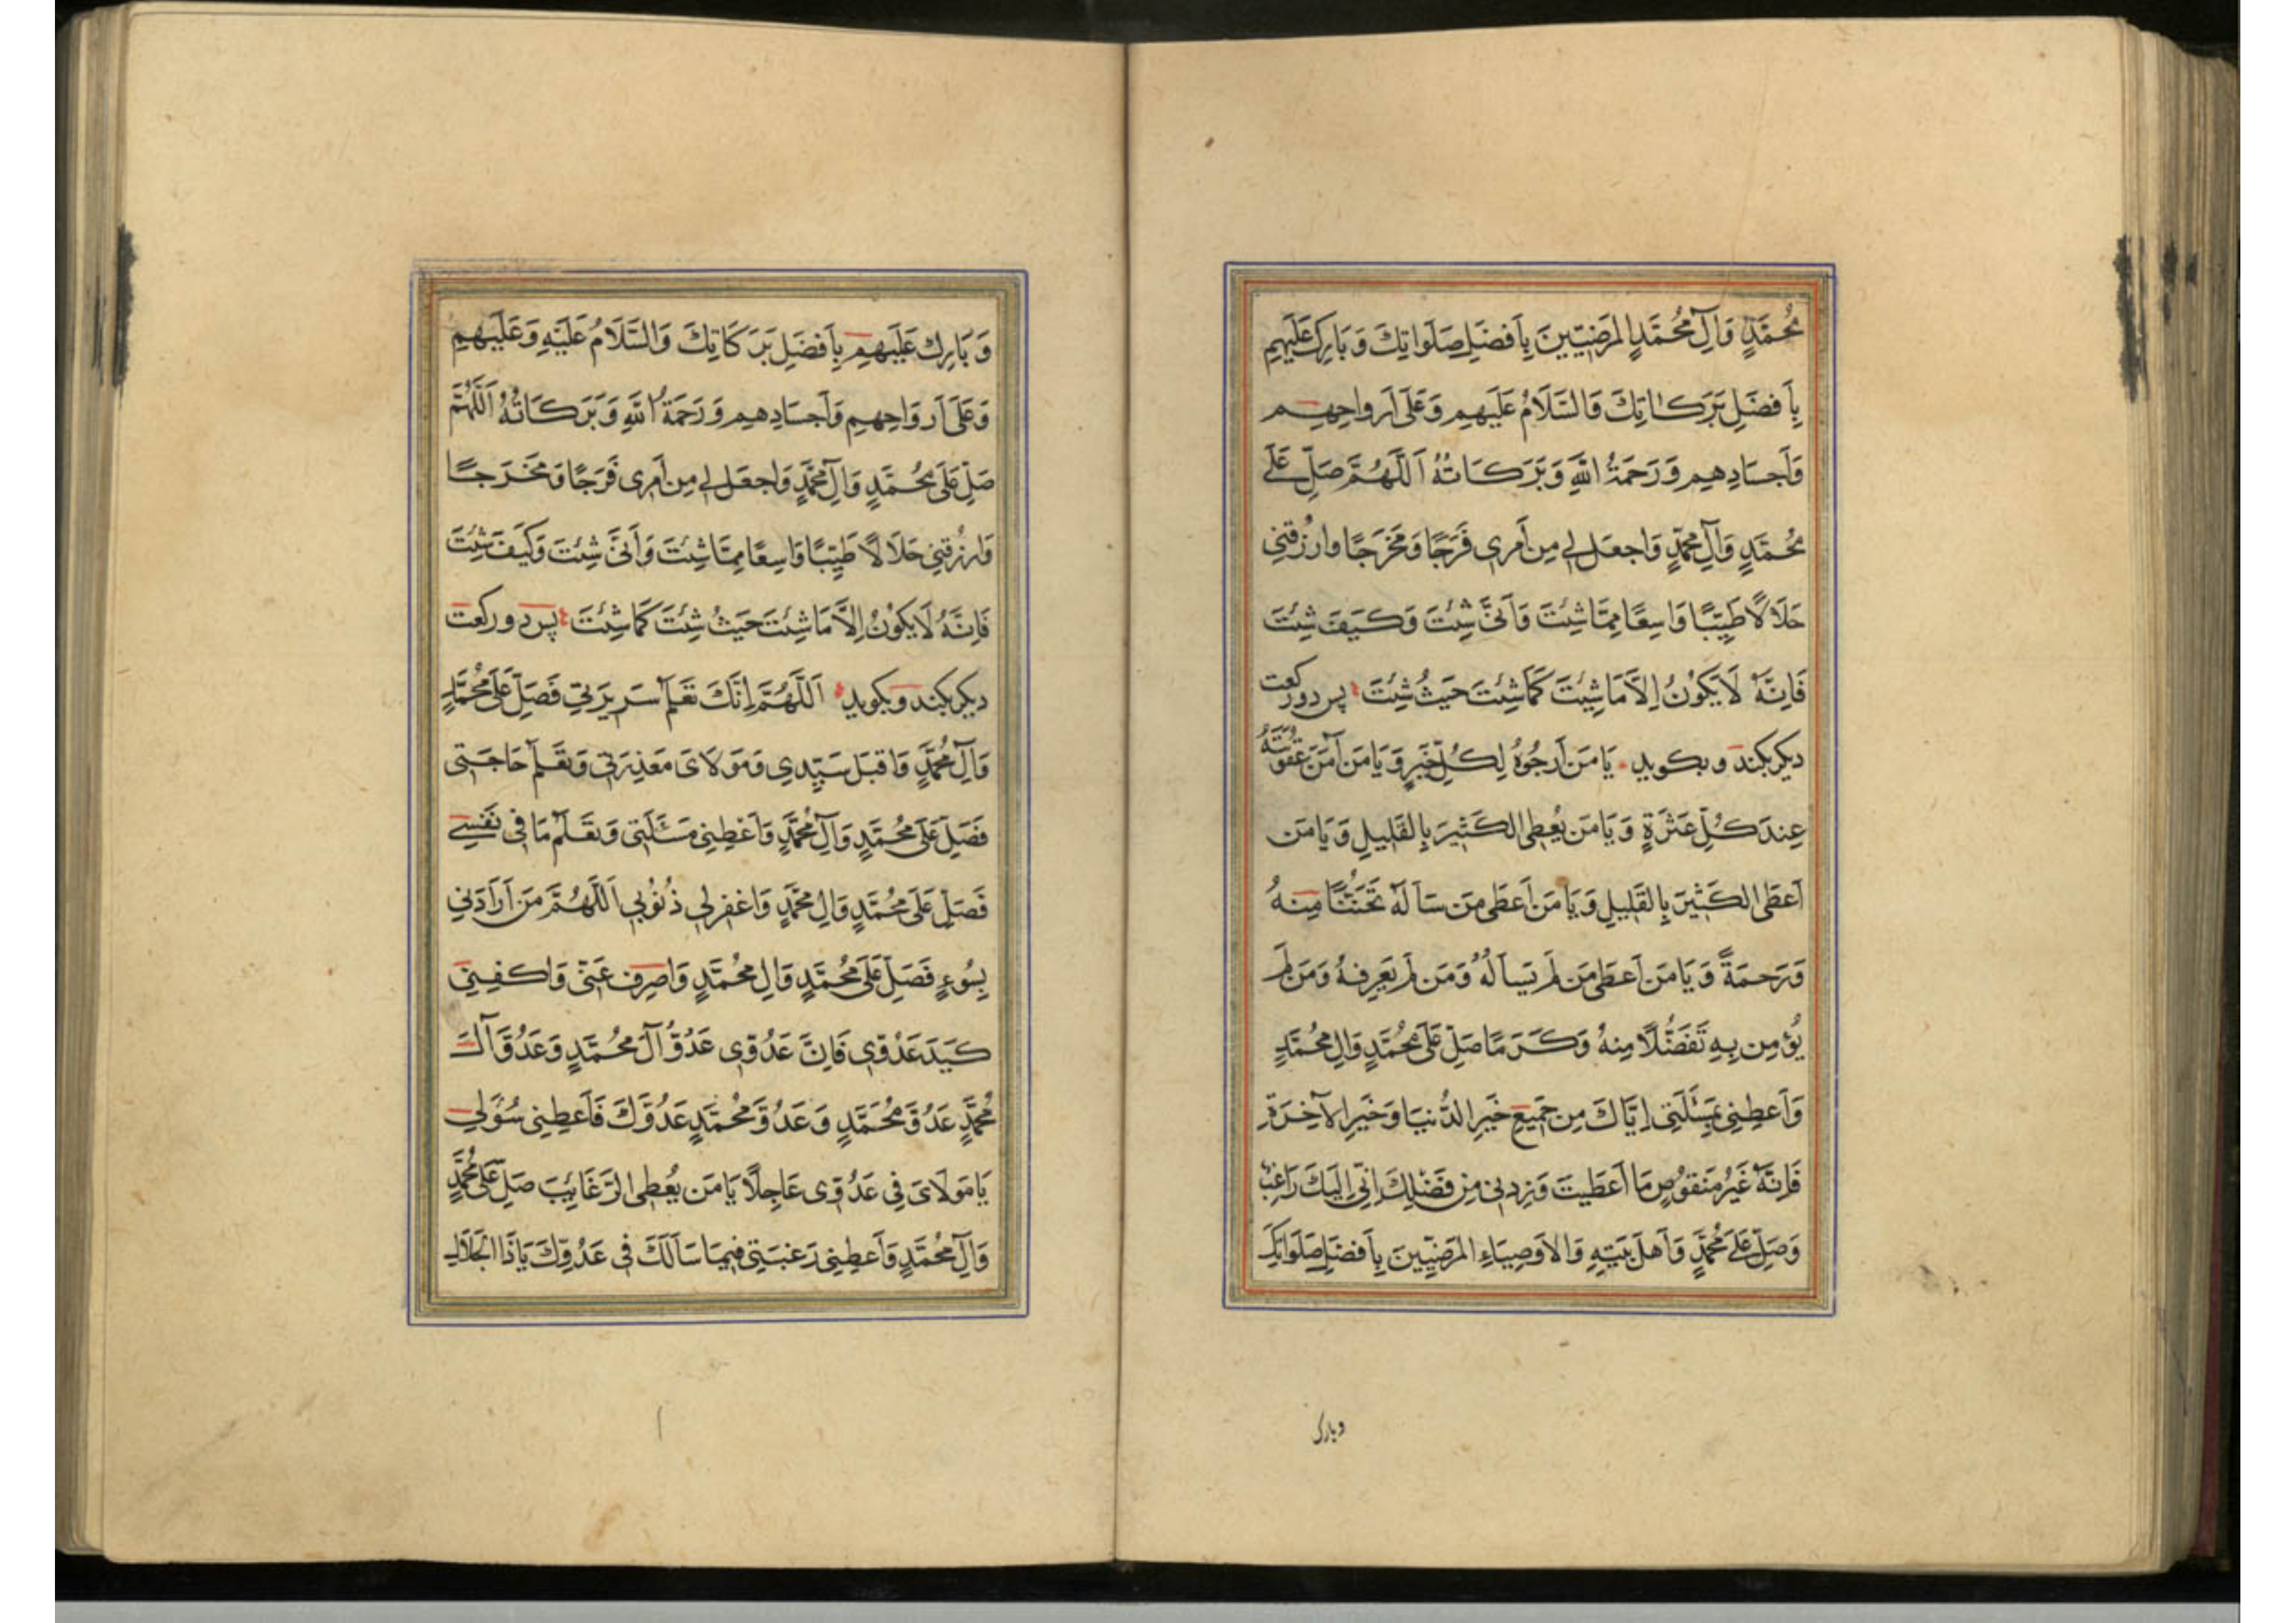 مُحَمَّدٍ وَآلِ مُحَمَّدٍ المَرضِيّينَ بِاَفضَلِ صَلَوَاتِكَ وَبَارِك عَلَيهِم
بِاَفضَلِ بَرَكاتِكَ وَالسَّلَامُ عَلَيهِم وَعَلَى اَرواحِهِم
وَاَجسَادِهِم وَرَحمَةُ اللهِ وَبَرَكَاتُهُ اَللّهُمَّ صَلِّ عَلَى
مُحُمَّدٍ وَآلِ مُحَمَّدٍ وَاجعَل لِي مِن اَمرِى فَرَجًا وَمَخرَجًا وارزُقنِى
حَلَالًا طَيِّبًا وَاسِعًا مِمَّا شِئتَ وَاَنّى شِئتَ وَكَيفَ شِئتَ
فَاِنَّهُ لَا يَكُونُ اِلَّا مَا شِئتَ كَمَا شِئتَ حَيثُ شِئتَ پس دو ركعت
ديكر بكند وبكويد يَا مَن اَرجُوهُ لِكُلِّ خَيرٍ وَيَا مَن آمَنُ عُقُوبَتَهُ
عِندَ كُلِّ عَثرَةٍ وَيَا مَن يُعطِى الكَثِيرَ بِالقَلِيلِ وَيَا مَن
اَعطَى الكَثِيرَ بِالقَلِيلِ وَيَا مَن اَعطَى مَن سَاَلَهُ تَحَنُّنًا مِنهُ
وَرَحمَةً وَيَا مَن اَعطَى مَن لَم يَساَلهُ وَمَن لَم يَعرِفهُ وَمَن لَم
يُؤمِن بِهِ تَفَضُّلًا مِنهُ وَكَرَمًا صَلِّ عَلَى مُحُمَّدٍ وَالِ مُحَمَّدٍ
وَاَعطِنِى بِمَسئَلَتِى اِيَّاكَ مِن جَمِيعِ خَيرِ الدُّنيَا وَخَيرِ الآخِرَةِ
فَاِنَّهُ غَيرُ مَنقُوصٍ مَا اَعطَيتَ وَزِدنِى مِن فَضلِكَ اِنِّى اِلَيكَ رَاغِبٌ
وَصَلِّ عَلَى مُحَمَّدٍ وَاَهلِ بَيتِهِ وَالاَوصِيَاءِ المَرضِيّينَ بِاَفضَلِ صَلَوَاتِكَ
وبارك
وَبَارِك عَلَيهِم بِاَفضَلِ بَرَكَاتِكَ وَالسَّلَامُ عَلَيهِ وَعَلَيهِم
وَعَلَى اَروَاحِهِم وَاَجسَادِهِم وَرَحمَةُ اللهِ وَبَرَكَاتُهُ اَللّهُمَّ
صَلِّ عَلَى مُحُمَّدٍ وَآلِ مُحَمَّدٍ وَاجعَل لِي مِن اَمرِى فَرَجًا وَمَخرَجًا
وَارزُقنِى حَلَالًا طَيِّبًا وَاسِعًا مِمَّا شِئتَ وَاَنّى شِئتَ وَكَيفَ شِئتَ
فَاِنَّهُ لَا يَكُونُ اِلَّا مَا شِئتَ حَيثُ شِئتَ كَمَا شِئتَ پس دو ركعت
ديكر بكند وبكويد اَللّهُمَّ اِنَّكَ تَعلَم سَرِيرَتِى فَصَلِّ عَلَى مُحَمَّدٍ
وَآلِ مُحَمَّدٍ وَاقبَل سَيِّدِى وَمَولَاىَ مَعذِرَتِى وَتَعلَم حَاجَتِى
فَصَلِّ عَلَى مُحُمَّدٍ وَآلِ مُحَمَّدٍ وَاَعطِنِى مَسئَلَتِى وَتَعلَمُ مَا فِى نَفسِى
فَصَلِّ عَلَى مُحُمَّدٍ وَالِ مُحَمَّدٍ وَاغفِر لِى ذُنُوبِى اَللّهُمَّ مَن اَرَادَنِى
بِسُوءٍ فَصَلِّ عَلَى مُحُمَّدٍ وَالِ مُحُمَّدٍ وَاصرِف عَنِّى وَاكفِنِى
كَيدَ عَدُوِّى فَاِنَّ عَدُوِّى عَدُوُّ آلِ مُحُمَّدٍ وَعَدُوَّ آلِ
مُحَمَّدٍ عَدُوَّ مُحَمَّدٍ وَعَدُوَّ مُحُمَّدٍ عَدُوَّكَ فَاَعطِنِى سُؤلِى
يَا مَولَاىَ فِى عَدُوِّى عَاجِلًا يَا مَن يُعطِى الرَّغَائِبَ صَلِّ عَلَى مُحَمَّدٍ
وَآلِ مُحُمَّدٍ وَاَعطِنِى رَغبَتِى فِيمَا سَاَلَكَ فِى عَدُوِّكَ يَا ذَا الجَلَالِ